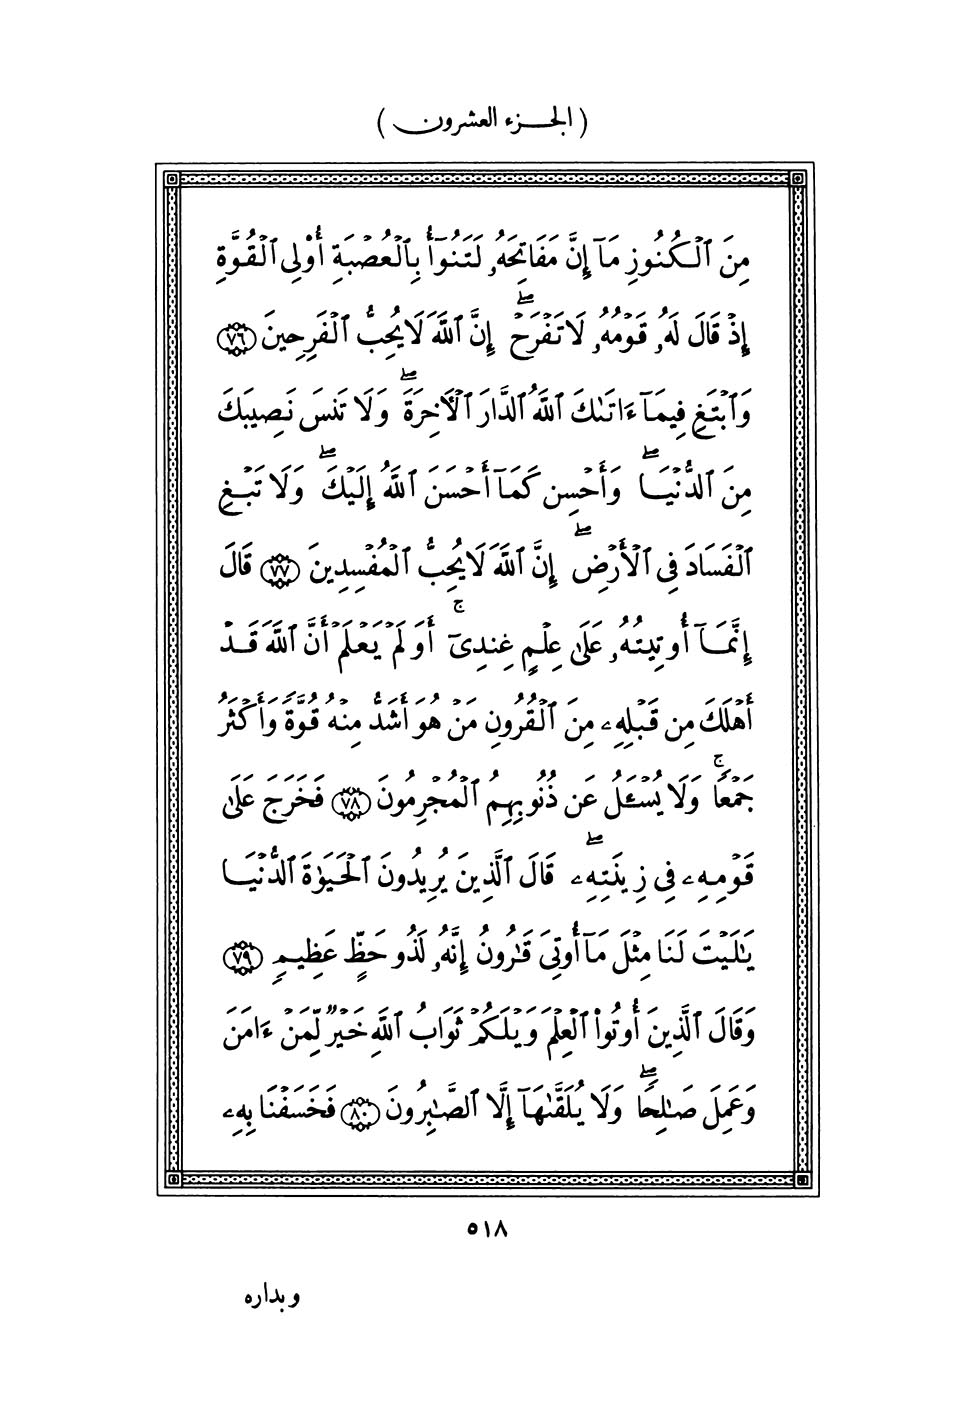 ( الجزء العشرون )
مِنَ ٱلْكُنُوزِ مَآ إِنَّ مَفَاتِحَهُۥ لَتَنُوٓأُ بِٱلْعُصْبَةِ أُوْلِى ٱلْقُوَّةِ
إِذْ قَالَ لَهُۥ قَوْمُهُۥ لَا تَفْرَحْ ۖ إِنَّ ٱللَّهَ لَا يُحِبُّ ٱلْفَرِحِينَ ٧٦
وَٱبْتَغِ فِيمَآ ءَاتَىٰكَ ٱللَّهُ ٱلدَّارَ ٱلْأَخِرَةَ ۖ وَلَا تَنسَ نَصِيبَكَ
مِنَ ٱلدُّنْيَا ۖ وَأَحْسِن كَمَآ أَحْسَنَ ٱللَّهُ إِلَيْكَ ۖ وَلَا تَبْغِ
ٱلْفَسَادَ فِى ٱلْأَرْضِ ۖ إِنَّ ٱللَّهَ لَا يُحِبُّ ٱلْمُفْسِدِينَ ٧٧ قَالَ
إِنَّمَآ أُوتِيتُهُۥ عَلَىٰ عِلْمٍ عِندِىٓ ۚ أَوَلَمْ يَعْلَمْ أَنَّ ٱللَّهَ قَدْ
أَهْلَكَ مِن قَبْلِهِۦ مِنَ ٱلْقُرُونِ مَنْ هُوَ أَشَدُّ مِنْهُ قُوَّةً وَأَكْثَرُ
جَمْعًا ۚ وَلَا يُسْـَٔلُ عَن ذُنُوبِهِمُ ٱلْمُجْرِمُونَ ٧٨ فَخَرَجَ عَلَىٰ
قَوْمِهِۦ فِى زِينَتِهِۦ ۖ قَالَ ٱلَّذِينَ يُرِيدُونَ ٱلْحَيَوٰةَ ٱلدُّنْيَا
يَٰلَيْتَ لَنَا مِثْلَ مَآ أُوتِىَ قَٰرُونُ إِنَّهُۥ لَذُو حَظٍّ عَظِيمٍ ٧٩
وَقَالَ ٱلَّذِينَ أُوتُوا۟ ٱلْعِلْمَ وَيْلَكُمْ ثَوَابُ ٱللَّهِ خَيْرٌ لِّمَنْ ءَامَنَ
وَعَمِلَ صَٰلِحًا ۖ وَلَا يُلَقَّىٰهَآ إِلَّا ٱلصَّٰبِرُونَ ٨٠ فَخَسَفْنَا بِهِۦ
٥١٨
وبداره